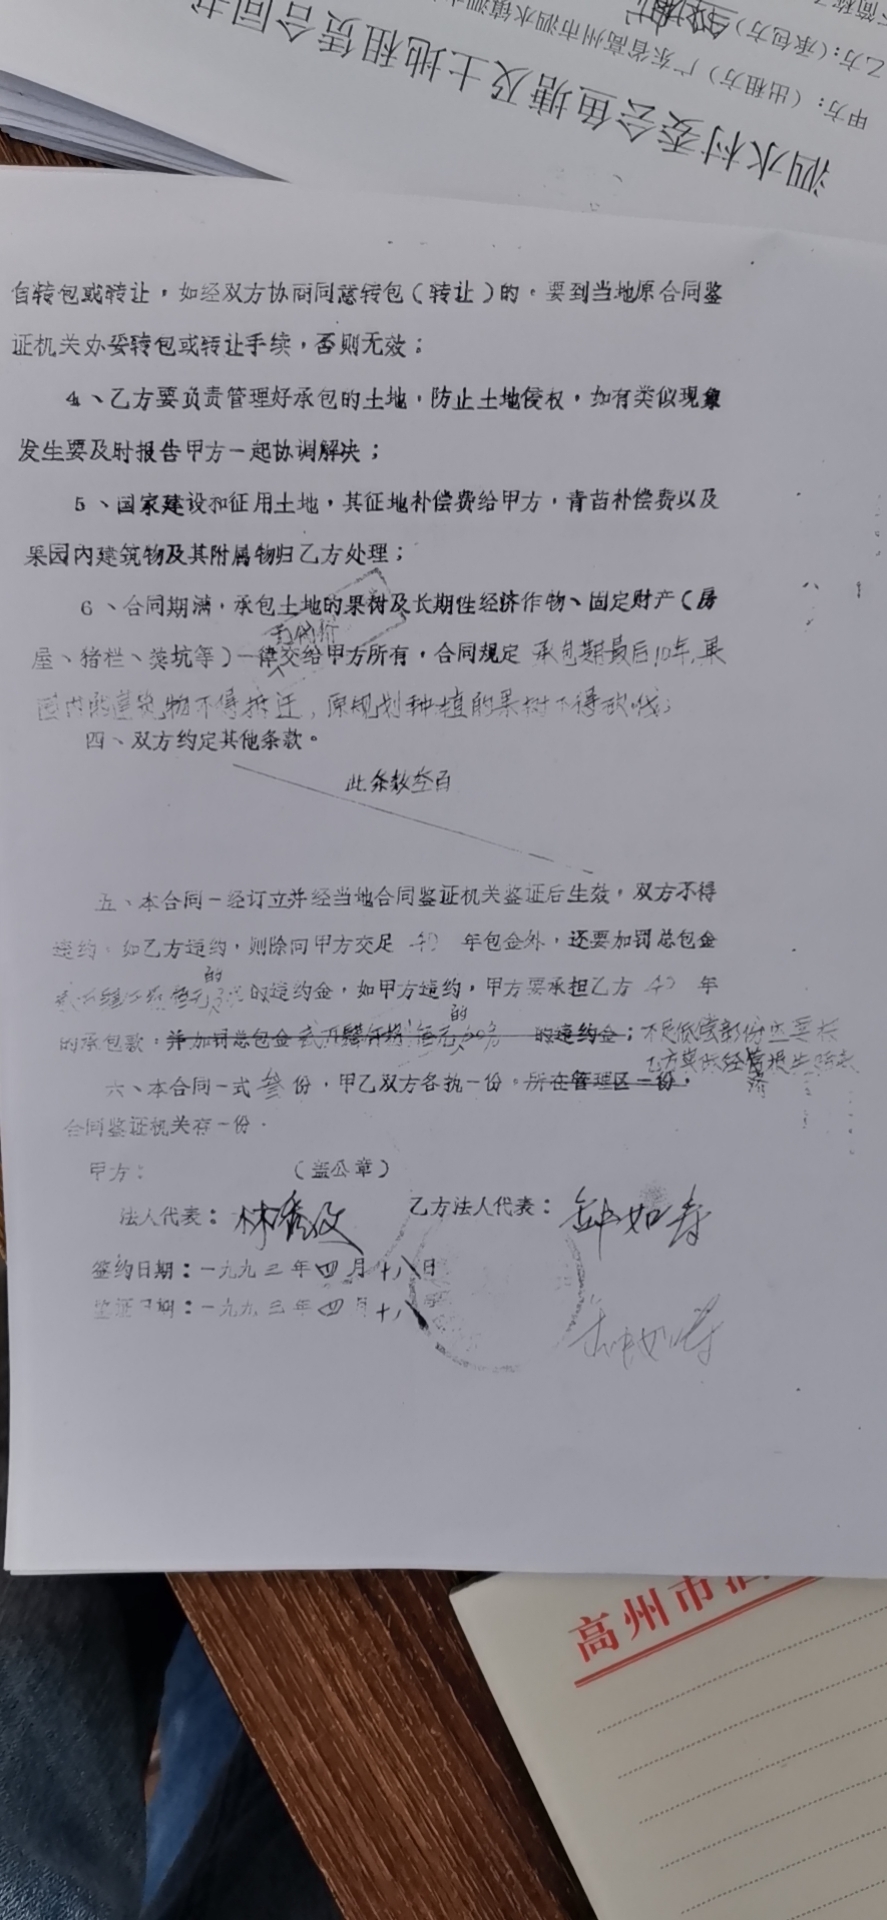 泗水村委会鱼塘及土地租赁合同书
甲方：（出租方）广东省高州市泗水镇泗水
乙方：（承包方）
自转包或转让，如经双方协商同意转包（转让）的。要到当地原合同鉴
证机关办妥转包或转让手续，否则无效；
4、乙方要负责管理好承包的土地，防止土地侵权，如有类似现象
发生要及时报告甲方一起协调解决；
5、国家建设和征用土地，其征地补偿费给甲方，青苗补偿费以及
果园内建筑物及其附属物归乙方处理；
6、合同期满，承包土地的果树及长期性经济作物、固定财产（房
无代价
屋、猪栏、粪坑等）一律交给甲方所有，合同规定 承包期最后10年,果
园内的建筑物不得拆迁，原规划种植的果树不得砍伐；
四、双方约定其他条款。
此条款空白
五、本合同一经订立并经当地合同鉴证机关鉴证后生效，双方不得
违约。如乙方违约，则除向甲方交足 40 年包金外，还要加罚总包金
的
的违约金，如甲方违约，甲方要承担乙方 40 年
的
的承包款。并加罚总包金 的违约金；不足低偿部份还要补
乙方实际经营损失
六、本合同一式叁份，甲乙双方各执一份。所在管理区一份，
合同鉴证机关存一份．
甲方： （盖公章）
法人代表：林秀 乙方法人代表：钟如寿
签约日期：一九九三年四月十八日
鉴证日期：一九九三年四月十八
钟如寿
高州市